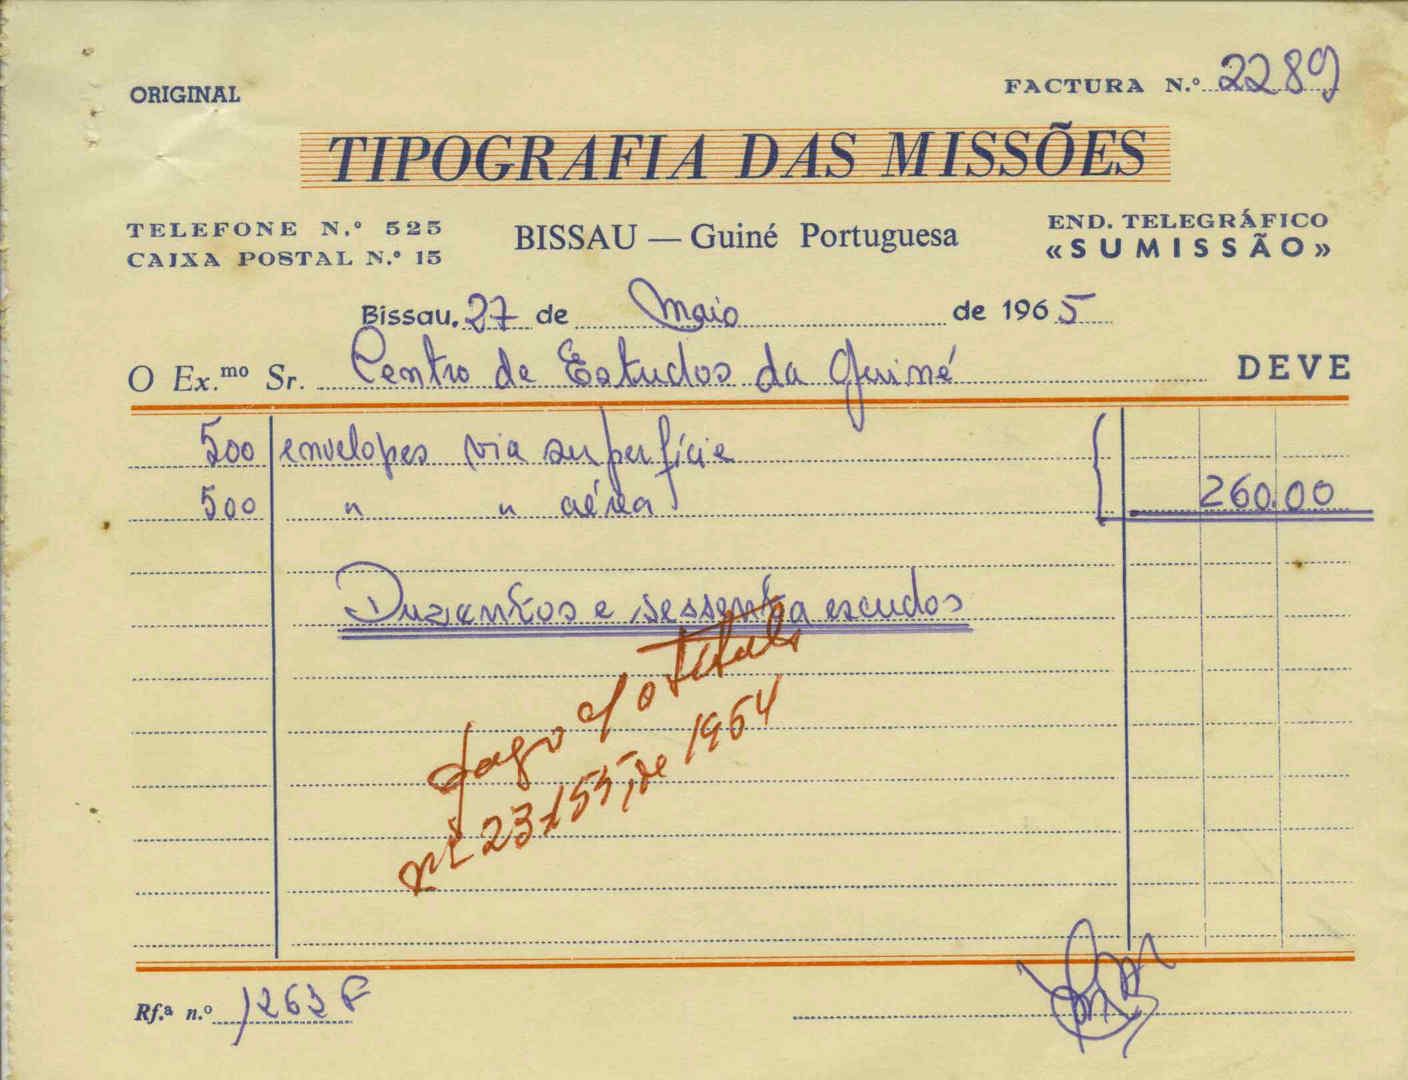 ORIGINAL
FACTURA N.º 2289
TIPOGRAFIA DAS MISSÕES
TELEFONE N.º 525
CAIXA POSTAL N.º 15
BISSAU — Guiné Portuguesa
END. TELEGRÁFICO
«SUMISSÃO»
Bissau, 27 de Maio de 1965
O Ex.mo Sr. Centro de Estudos da Guiné DEVE
500 envelopes via superfície
500 " " aérea 260.00
Duzentos e sessenta escudos
Pago c/ o Título
nº 23755, de 1964
Rf.ª n.º 1263 F